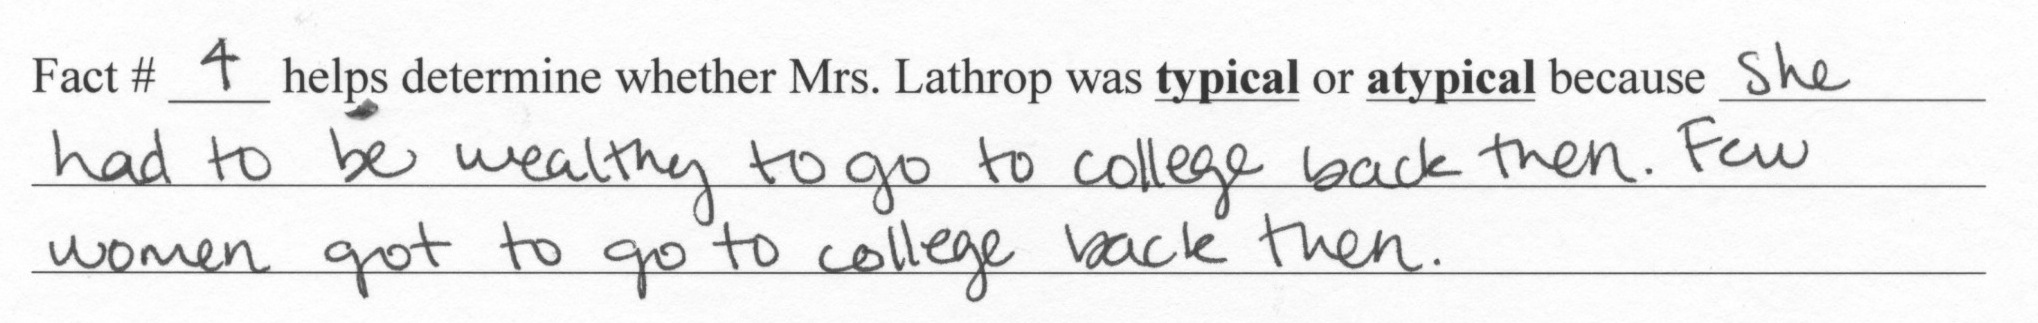 Fact # 4 helps determine whether Mrs. Lathrop was typical or atypical because she
had to be wealthy to go to college back then. Few
women got to go to college back then.